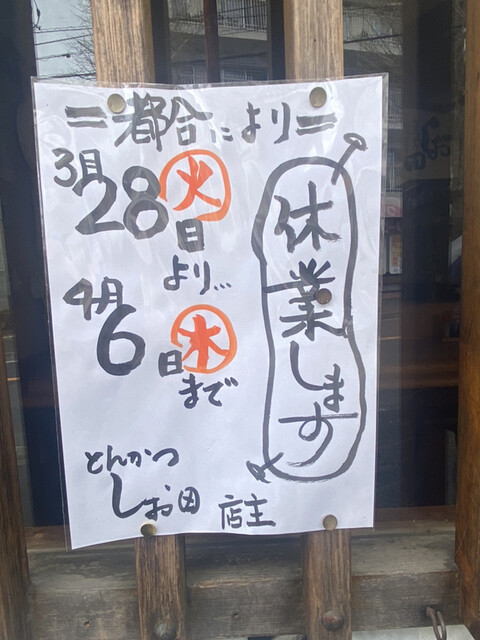 =都合により=
休業します
3月28日㊋
より…
4月6日㊍
まで
とんかつ
しお田 店主